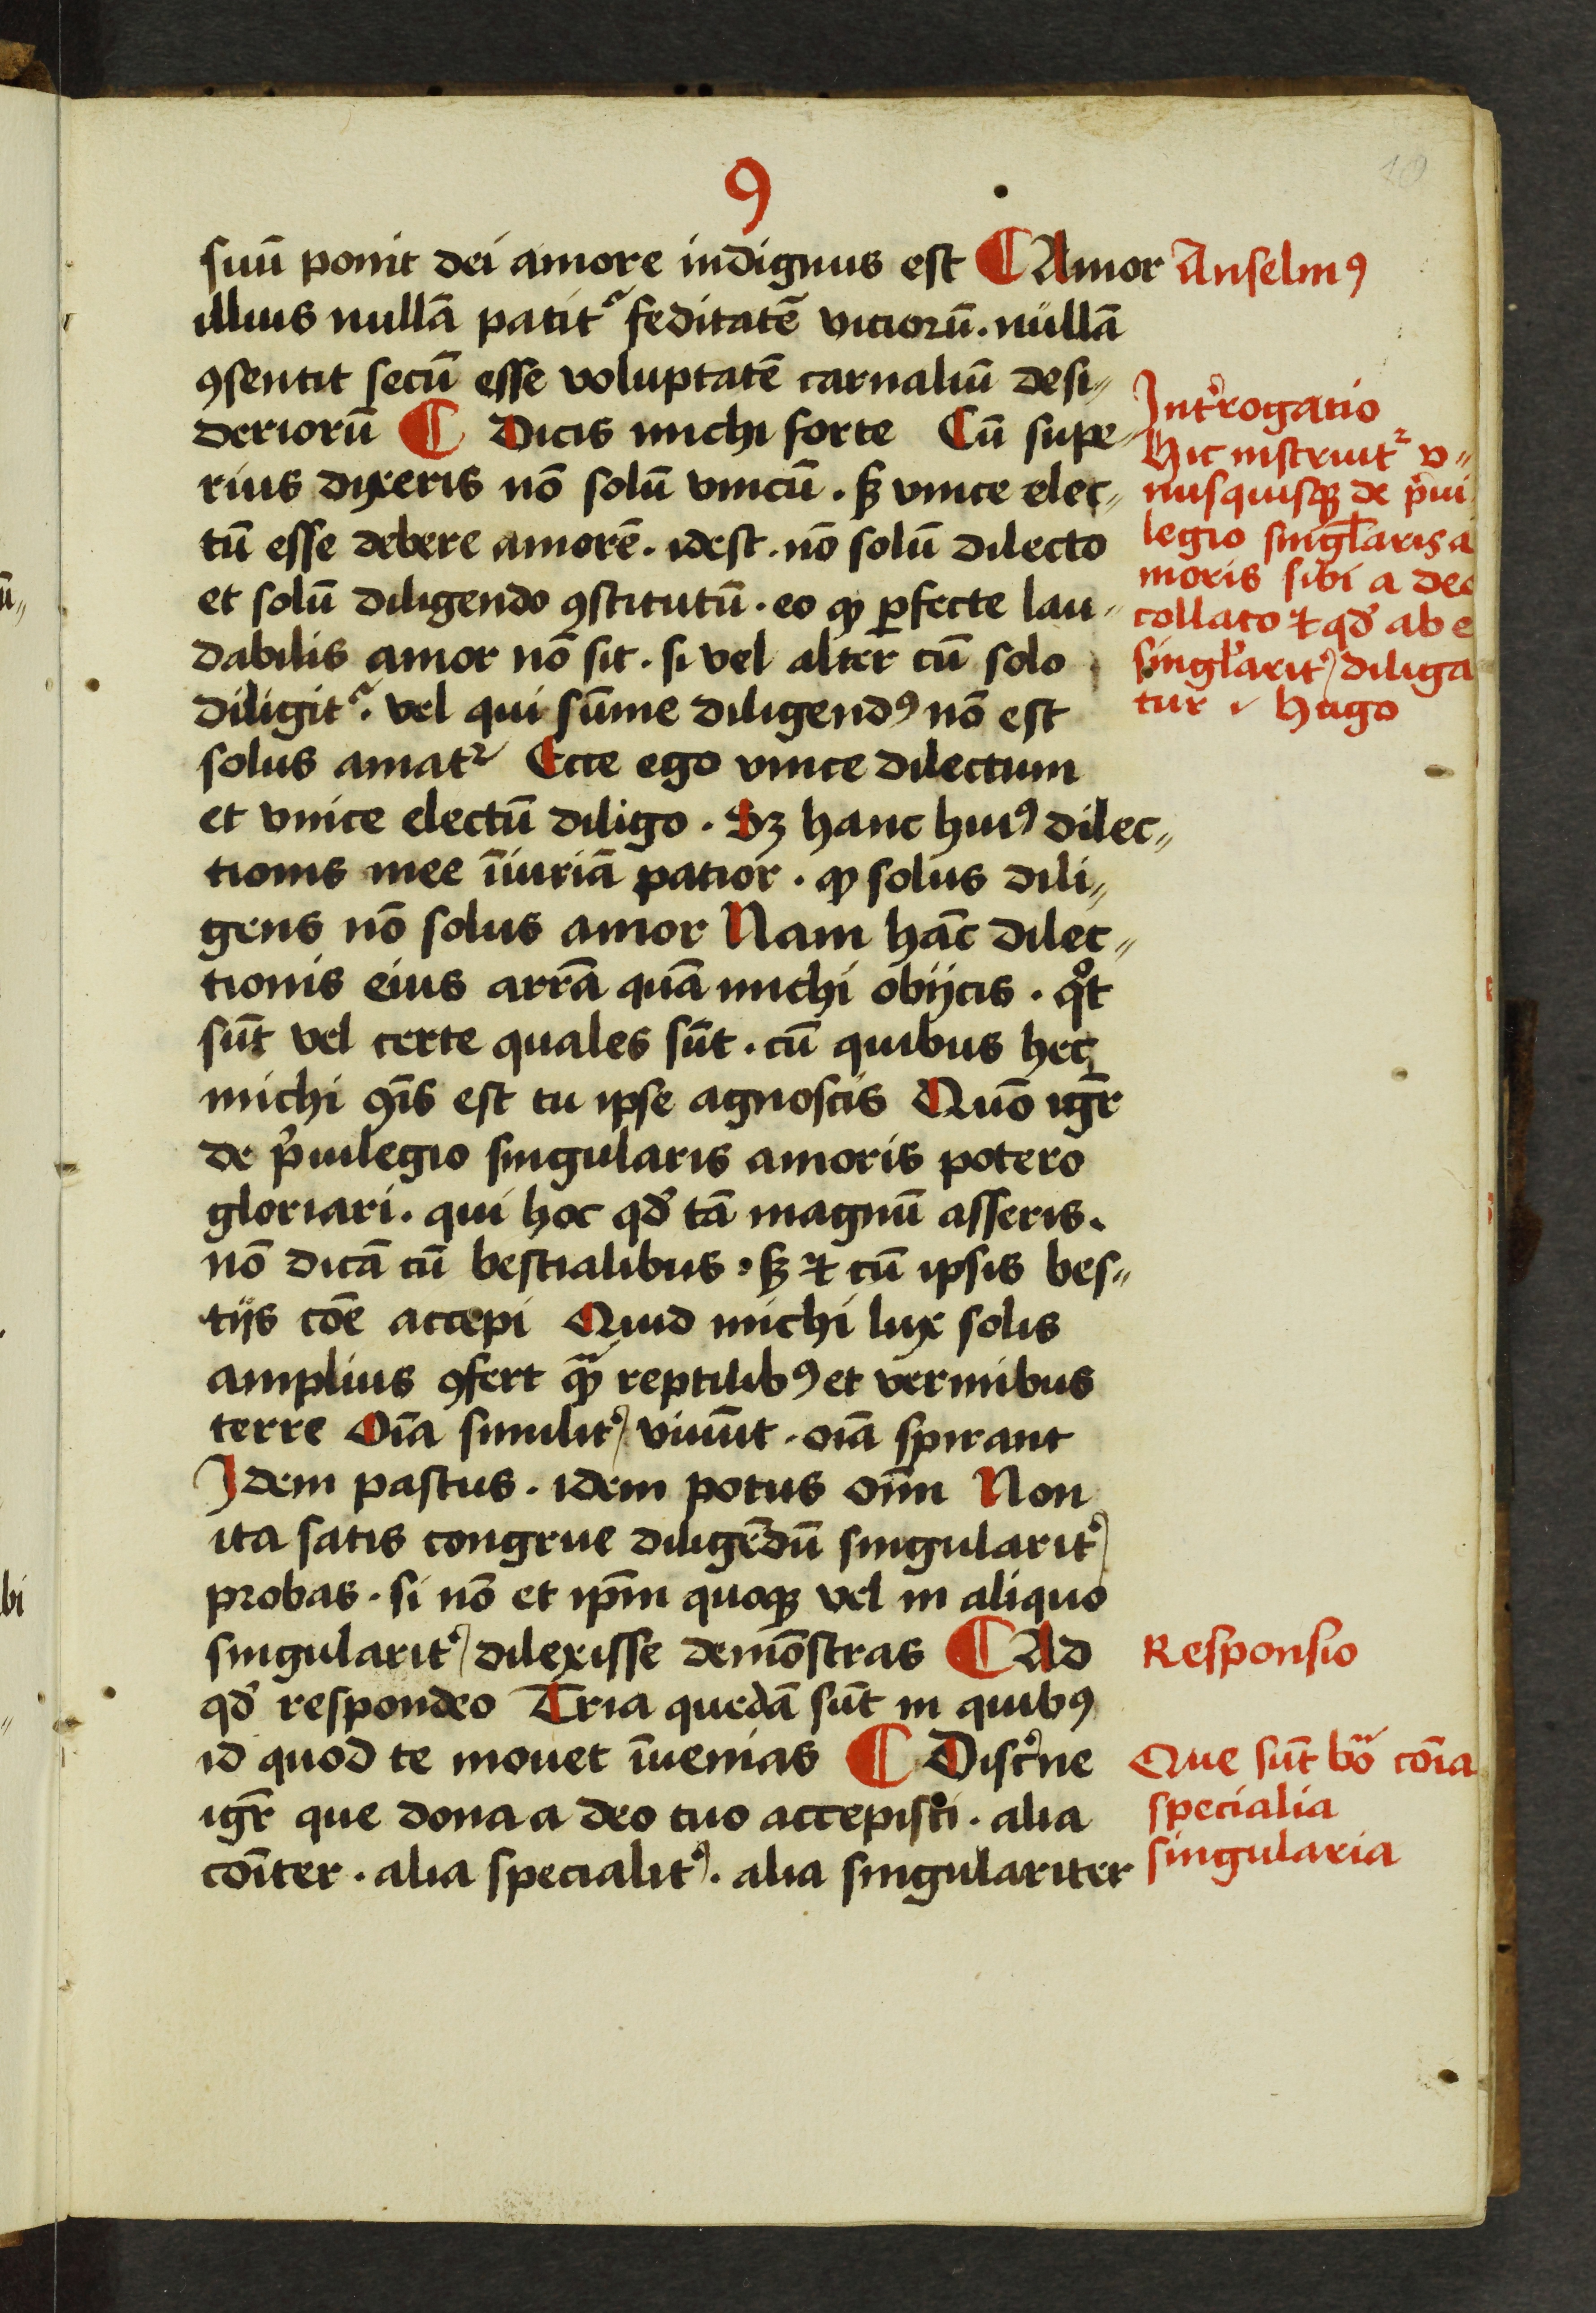 10
9
suū ponit dei amore indignus est ¶ Amor
Anselmꝰ
illius nullā patit᷑ feditatē viciorū . nullā
ꝯsentit secū esse voluptatē carnaliū desi⸗
deriorū ¶ Dicis michi forte Cū supe⸗
rius dixeris nō solū vnicū . sꝫ vnice elec⸗
tū esse debere amorē . idest . nō solū dilecto
et solū diligendo ꝯstitutū . eo ꝙ ꝑfecte lau⸗
dabilis amor nō sit . si vel alter̄ cū solo
diligit᷑ . vel qui sūme diligendꝰ nō est
solus amat᷑ Ecce ego vnice dilectum
et vnice electū diligo . Sꝫ hanc huiꝰ dilec⸗
tionis mee īiuriā patior . ꝙ solus dili⸗
gens nō solus amor Nam hāc dilec⸗
tionis eius arrā quā michi obijcis . qͦt
sūt vel certe quales sūt . cū quibus hec
michi ꝯīs est tu ipse agnoscis Quō igr̄
de p̓uilegio singularis amoris potero
gloriari . qui hoc qd̓ tā magnū asseris .
nō dicā cū bestialibus . sꝫ ⁊ cū ipsis bes⸗
tijs cōe accepi Quid michi lux solis
amplius ꝯfert quā reptilibꝰ et vermibus
terre Oīa similit᷑ viuūt . oīa spirant
Idem pastus . idem potus oīm Non
ita satis congrue diligēdū singularit᷑
probas . si nō et ip̄m quoqꝫ vel in aliquo
singularit᷑ dilexisse demōstras ¶ Ad
qd̓ respondeo Tria quedā sūt in quibꝰ
id quod te mouet īuenias ¶ Disc̓ne
igr̄ que dona a deo tuo accepisti . alia
cōīter . alia specialit᷑ . alia singulariter
Int̓rogatio
Hic instruit᷑ v⸗
nusquisqꝫ de p̓ui
legio singl̓aris a
moris sibi a deo
collato ⁊ qd̓ ab e
singl̓arit᷑ diliga
tur . Hugo
Responsio
Que sūt bōa cōīa
specialia
singularia